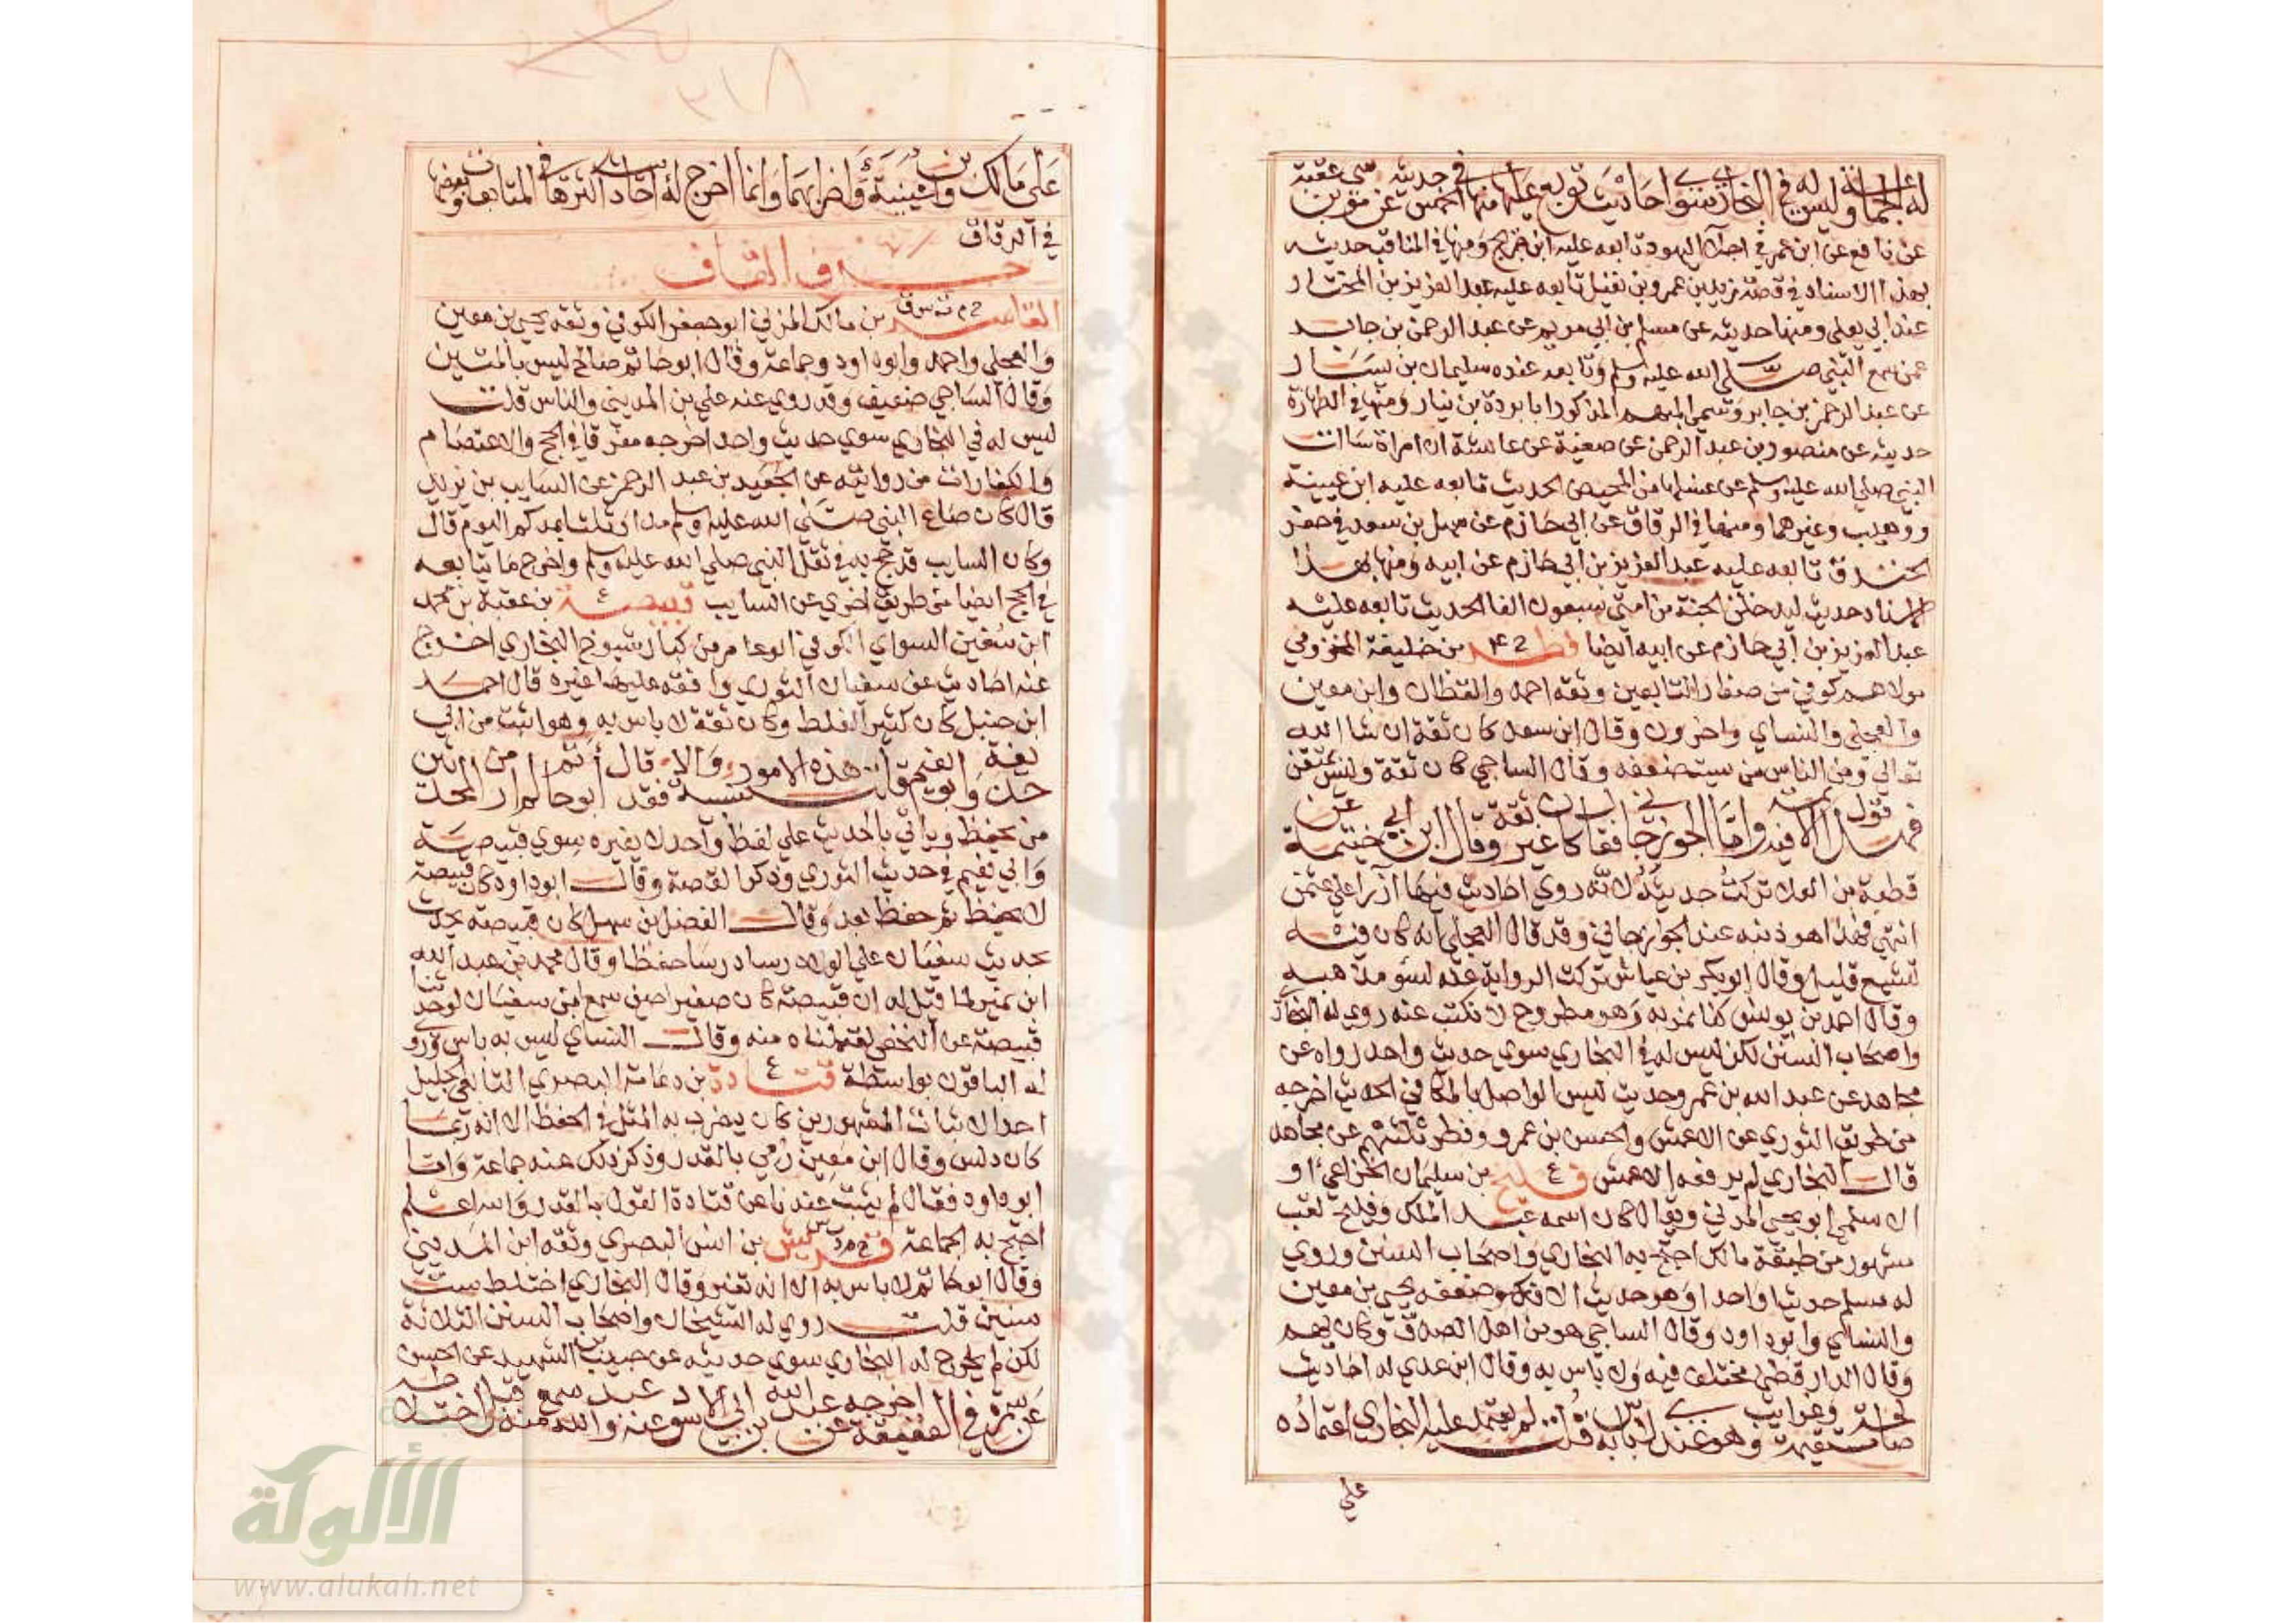 له الجماعة وليس له في البخاري سوي احاديث توبع عليها منها في الخمس حديثه عن موسي بن عقبة
عن نافع عن ابن عمر في اجلا اليهود تابعه عليه ابن جريج ومنها في المناقب حديثه
بهذا الاسناد في قصة زيد بن عمرو بن نفيل تابعه عليه عبد العزيز بن المختار
عند ابي يعلي ومنها حديثه عن مسلم بن ابي مريم عن عبد الرحمن بن جابر
عمن سمع النبي صلي الله عليه وسلم وتابعه عنده سليمان بن يسار
عن عبد الرحمن بن جابر وسمي المبهم المذكور ابا بردة بن نيار ومنها في الطهارة
حديثه عن منصور بن عبد الرحمن عن صفية عن عايشة ان امراة سالت
النبي صلي الله عليه وسلم عن غسلها من المحيض الحديث تابعه عليه ابن عيينة
ووهيب وغيرهما ومنها في الرقاق عن ابي حازم عن سهل بن سعد في حفر
الخندق تابعه عليه عبد العزيز بن ابي حازم عن ابيه ومنها بهذا
الاسناد حديث ليدخلن الجنة من امتي سبعون الفا الحديث تابعه عليه
عبد العزيز بن ابي حازم عن ابيه ايضا فطر خ ٤ بن خليفة المخزومي
مولاهم كوفي من صغار التابعين وثقه احمد والقطان وابن معين
والعجلي والنساي واخرون وقال ابن سعد كان ثقة ان شا الله
تعالي ومن الناس من يستضعفه وقال الساجي كان ثقة وليس بمتقن
فهذا قول الايمة فيه واما الجوزجاني فقال كان غير ثقة وقال ابن ابي خيثمة عن
قطبة بن العلا تركت حديثه لانه روي احاديث فيها ازرا علي عثمن
انتهي فهذا هو ذنبه عند الجوزجاني وقد قال العجلي انه كان فيه
تشيع قليل وقال ابو بكر بن عياش تركت الرواية عنه لسو مذهبه
وقال احمد بن يونس كنا نمر به وهو مطروح لا نكتب عنه روي له البخاري
واصحاب السنن لكن ليس له في البخاري سوي حديث واحد رواه عن
مجاهد عن عبد الله بن عمرو حديث ليس الواصل بالمكافي الحديث اخرجه
من طريق الثوري عن الاعمش والحسن بن عمرو وفطر ثلثتهم عن مجاهد
قال البخاري لم يرفعه الاعمش فليح ع بن سليمان الخزاعي او
الاسلمي ابو يحيي المدني ويقال كان اسمه عبد الملك وفليح لقب
مشهور من طبقة مالك احتج به البخاري واصحاب السنن وروي
له مسلم حديثا واحدا وهو حديث الافك وضعفه يحيي بن معين
والنساي وابو داود وقال الساجي هو من اهل الصدق وكان يهم
وقال الدارقطني مختلف فيه ولا باس به وقال ابن عدي له احاديث
صالحة مستقيمة وغرايب وهو عندي لا باس به قلت لم يعتمد عليه البخاري اعتماده
علي
علي مالك وابن عيينة واضرابهما وانما اخرج له احاديث اكثرها في المتابعات وبعضها
في الرقاق
حرف القاف
القاسم خ م ت س ق بن مالك المزني ابو جعفر الكوفي وثقه يحيي بن معين
والعجلي واحمد وابو داود وجماعة وقال ابو حاتم صالح ليس بالمتين
وقال الساجي ضعيف وقد روي عنه علي بن المديني والناس قلت
ليس له في البخاري سوي حديث واحد اخرجه مفرقا في الحج والاعتصام
والكفارات من روايته عن الجعيد بن عبد الرحمن عن السايب بن يزيد
قال كان صاع النبي صلي الله عليه وسلم مدا وثلثا بمدكم اليوم قال
وكان السايب قد حج به في ثقل النبي صلي الله عليه وسلم واخرج ما يتابعه
في الحج ايضا من طريق اخري عن السايب قبيصة ع بن عقبة بن محمد
ابن سفين السواي الكوفي ابو عامر من كبار شيوخ البخاري اخرج
عنه احاديث عن سفيان الثوري وافقه عليها غيره قال احمد
ابن حنبل كان كثير الغلط وكان ثقة لا باس به وهو اثبت من ابي
حذيفة وابو نعيم اثبت منه قلت هذه الامور نسبية والا فقد قال ابو حاتم لم ار من المحدثين
من يحفظ وياتي بالحديث علي لفظ واحد لا يغيره سوي قبيصة
وابي نعيم في حديث الثوري وذكر القصة وقال ابو داود كان قبيصة
لا يحفظ ثم حفظ بعد وقال الفضل بن سهل كان قبيصة يحدث
بحديث سفيان علي الولا درسا درسا حفظا وقال محمد بن عبد الله
ابن نمير لما قيل له ان قبيصة كان صغيرا حين سمع من سفيان لو حدثنا
قبيصة عن النخعي لقبلناه منه وقال النساي ليس به باس وروي
له الباقون بواسطة قتادة ع بن دعامة البصري التابعي الجليل
احد الاثبات المشهورين كان يضرب به المثل في الحفظ الا انه ربما
كان دلس وقال ابن معين رمي بالقدر وذكر ذلك عنه جماعة واما
ابو داود فقال لم يثبت عندنا عن قتادة القول بالقدر والله اعلم
احتج به الجماعة قريش خ م د ت س بن انس البصري وثقه ابن المديني
وقال ابو حاتم لا باس به الا انه تغير وقال البخاري اختلط ست
سنين قلت روي له الشيخان واصحاب السنن الثلاثة
لكن لم يخرج له البخاري سوي حديثه عن حبيب بن الشهيد عن الحسن
عن سمرة في العقيقة اخرجه عن عبد الله بن ابي الاسود عنه والله سمع منه قبل اختلاطه
الألوكة
www.alukah.net